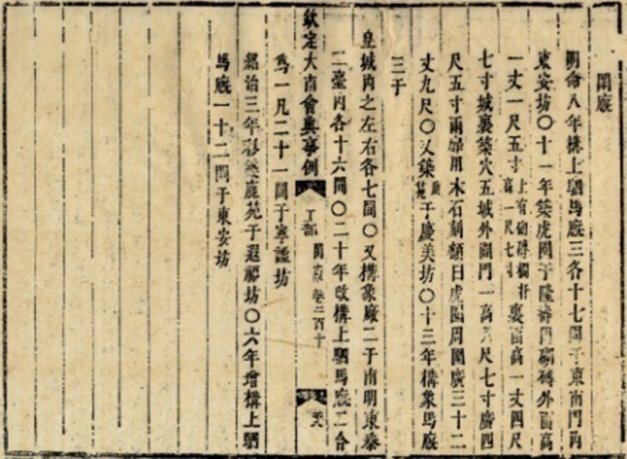 閑廄
明命八年構上駟馬廄三各十七間于東南門內
東安坊〇十一年築虎圈于隆壽門砌磚外面高
一丈一尺五寸上有砌磚欄杆高一尺七寸裏面高一丈四尺
七寸城裏築穴五城外闢門一高八尺七寸廣四
尺五寸兩扉用木石刻額曰虎圈周圍廣三十二
丈九尺〇又築鹿苑于慶美坊〇十三年構象馬廄
三于
皇城內之左右各七間〇又構象廄二于南明東泰
二臺內各十六間〇二十年改構上駟馬廄二合
欽定大南會典事例 工部 閑廄 卷二百十
為一凡二十一間于寧謐坊
紹治三年移築鹿苑于遐福坊〇六年增構上駟
馬廄一十二間于東安坊